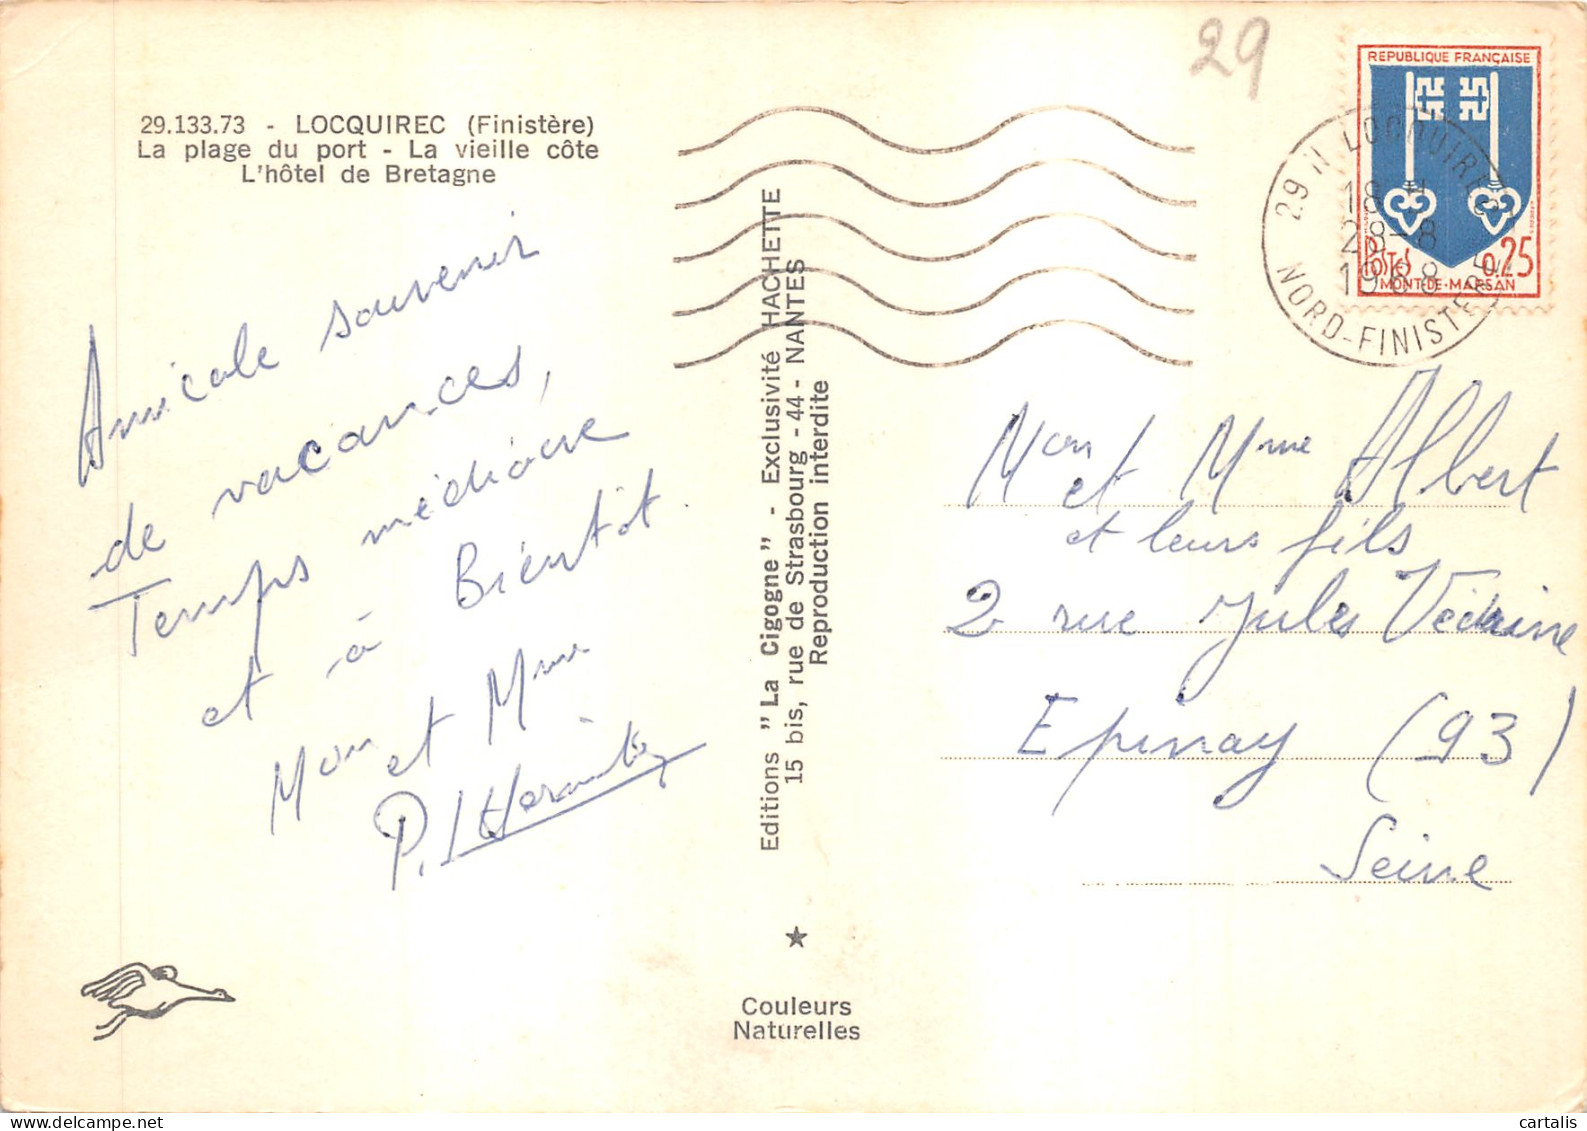 29
REPUBLIQUE FRANÇAISE
POSTES 0,25
MONT-DE-MARSAN
29 N LOCQUIREC
18 H
28-8
1968
NORD-FINISTERE
29.133.73 - LOCQUIREC (Finistère)
La plage du port - La vieille côte
L'hôtel de Bretagne
Amicale souvenir
de vacances,
Temps médiocre
et à Bientôt
Mon et Mme
P.
Editions "La Cigogne" - Exclusivité HACHETTE
15 bis, rue de Strasbourg - 44 - NANTES
Reproduction interdite
Mon et Mme Albert
et leurs fils
2 rue Jules Védrine
Epinay (93)
Seine
Couleurs
Naturelles
cartalis